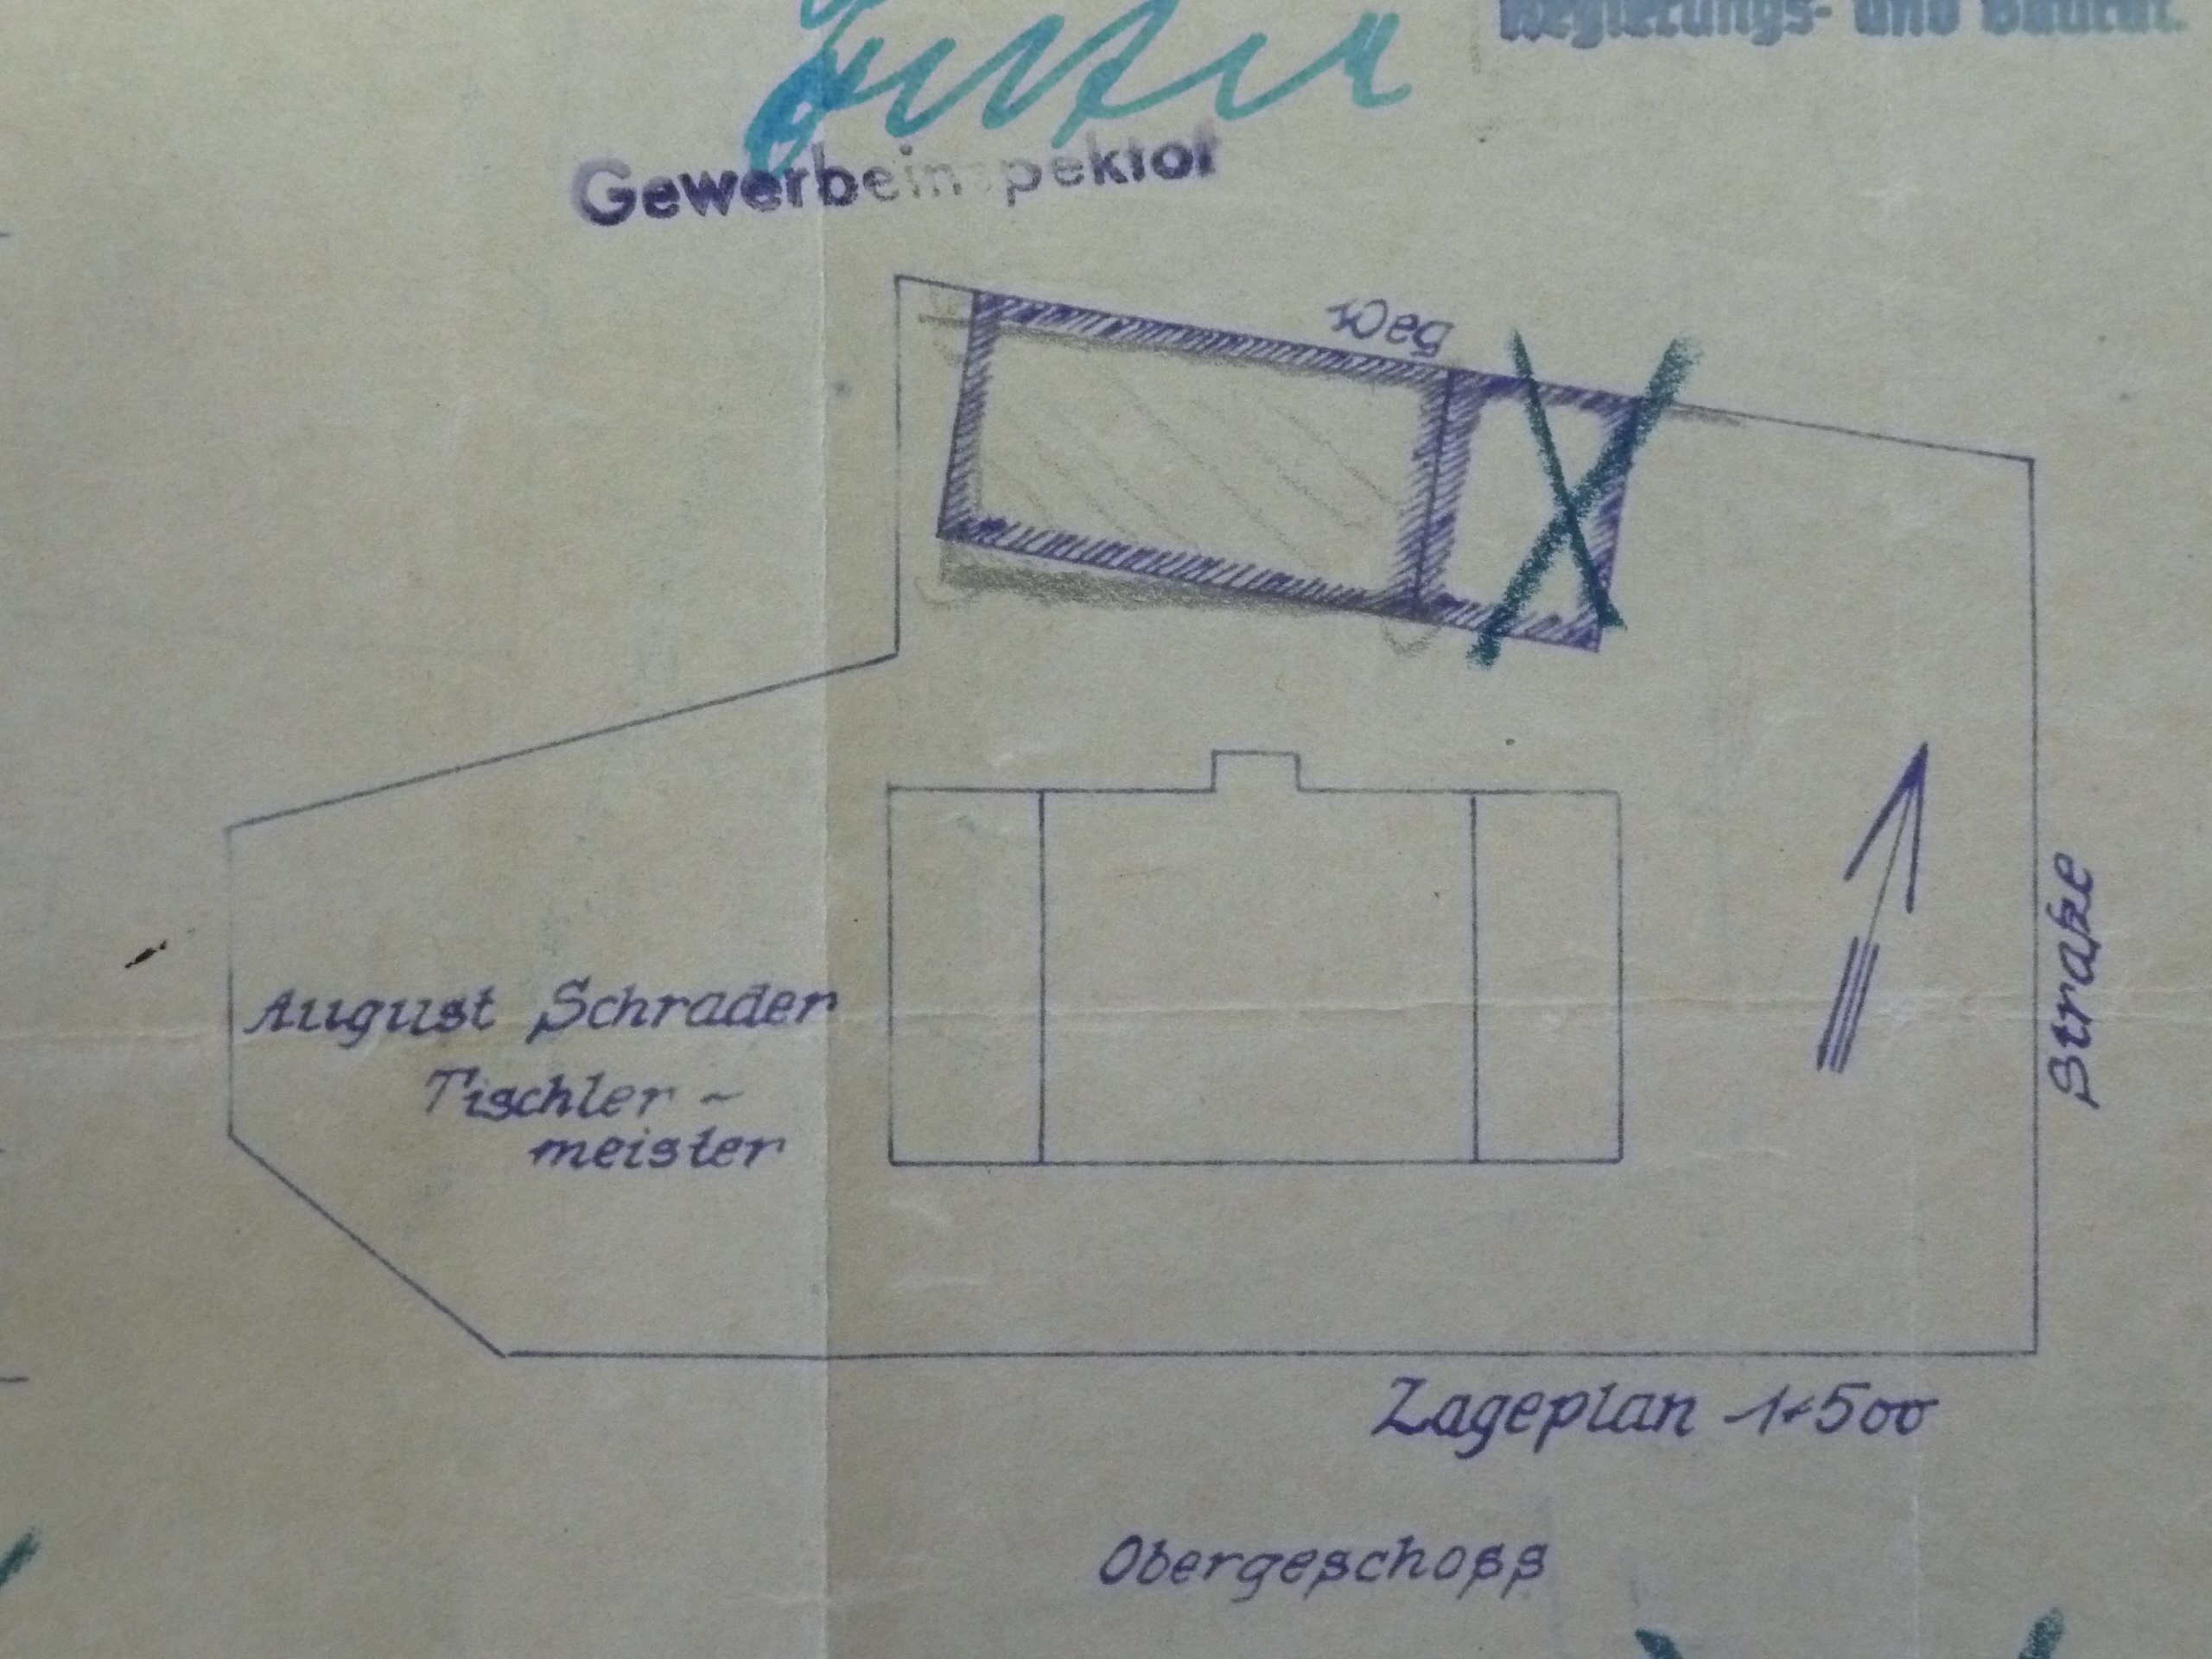 Regierungs- und Baurat.
Gewerbeinspektor
Weg
Straße
August Schrader
Tischler-
meister
Lageplan 1:500
Obergeschoss